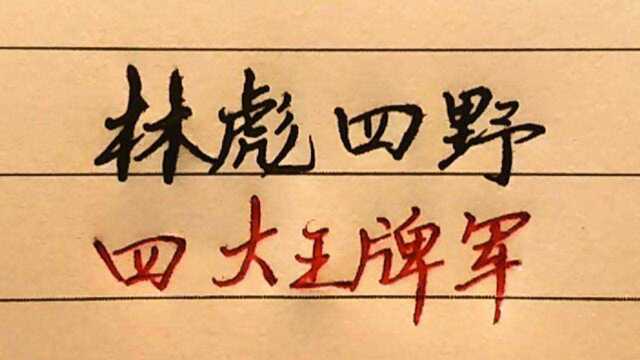 林彪四野
四大王牌军